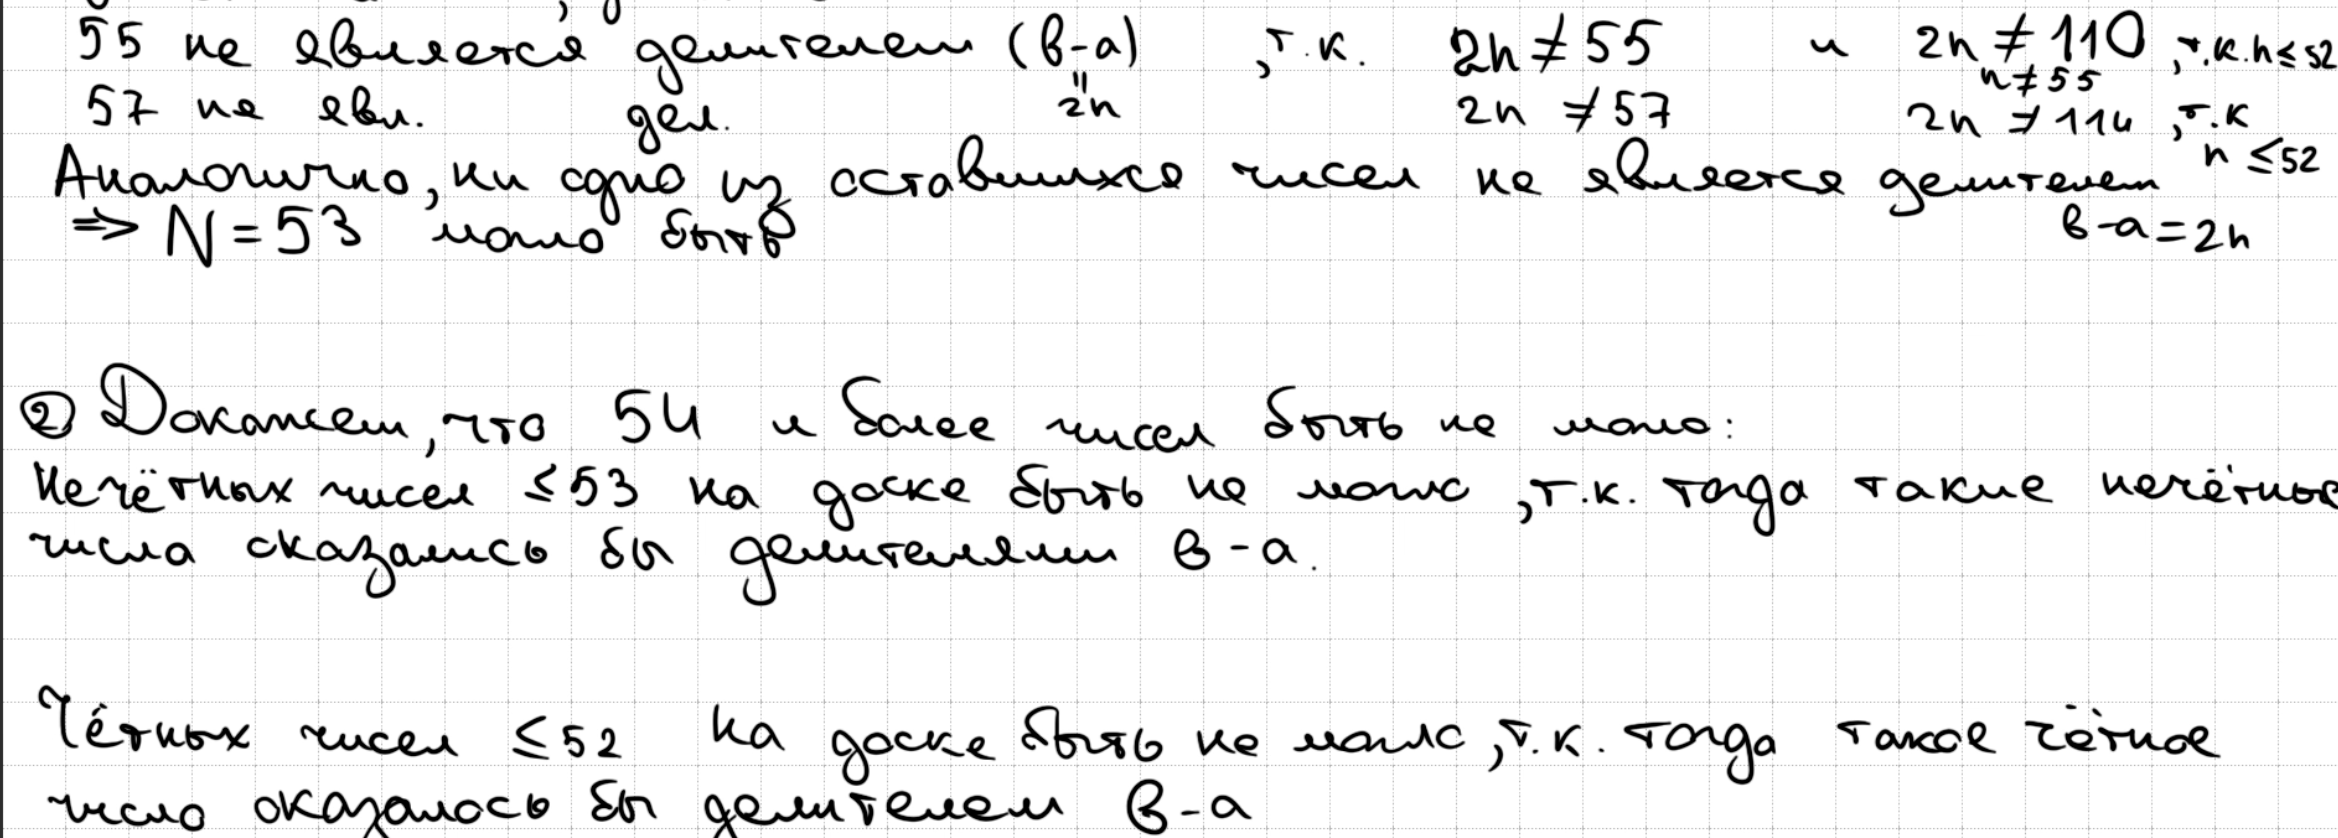 55 не является делителем (в-а) , т.к. 2n ≠ 55 и 2n ≠ 110 , т.к. n ≤ 52
" n ≠ 55
57 не явл. дел. 2n 2n ≠ 57 2n ≠ 114 , т.к
n ≤ 52
Аналогично, ни одно из оставшихся чисел не является делителем
⇒ N = 53 могло быть в-а = 2n
② Докажем, что 54 и более чисел быть не могло:
Нечётных чисел ≤ 53 на доске быть не могло , т.к. тогда такие нечётные
числа оказались бы делителями в-а.
Чётных чисел ≤ 52 на доске быть не могло , т.к. тогда такое чётное
число оказалось бы делителем в-а